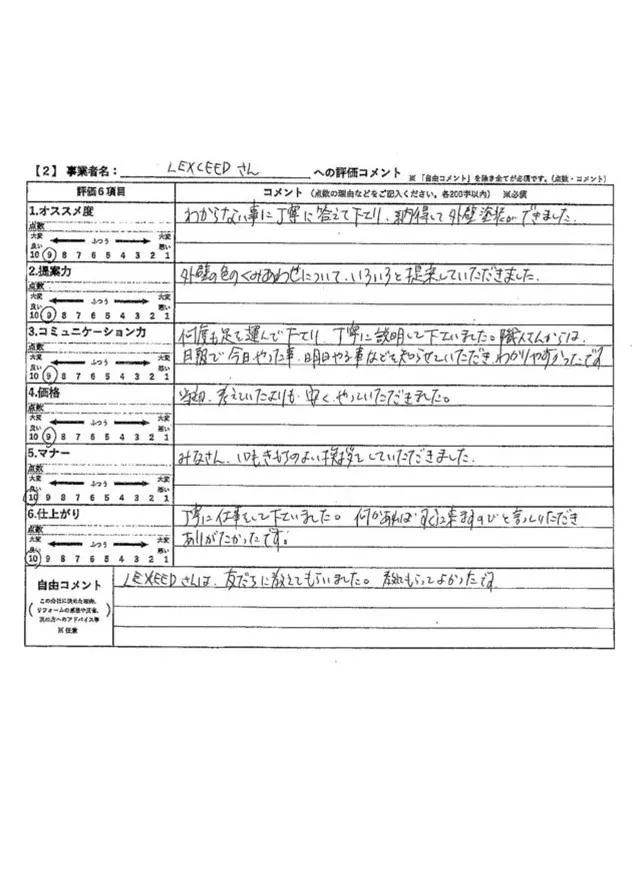 【2】 事業者名： LEXCEEDさん への評価コメント ※「自由コメント」を除き全てが必須です。（点数・コメント）
評価6項目 コメント（点数の理由などをご記入ください。各200字以内） ※必須
1.オススメ度 わからない事に丁寧に答えて下さり、納得して外壁塗装ができました。
点数
大変良い ふつう 大変悪い
10 9 8 7 6 5 4 3 2 1
2.提案力 外壁の色のくみあわせについて、いろいろと提案していただきました。
点数
大変良い ふつう 大変悪い
10 9 8 7 6 5 4 3 2 1
3.コミュニケーション力 何度も足を運んで下さり、丁寧に説明して下さいました。職人さんからは、
点数 日報で今日やった事、明日やる事などを知らせていただきわかりやすかったです
大変良い ふつう 大変悪い
10 9 8 7 6 5 4 3 2 1
4.価格 当初、考えていたよりも安くやっていただきました。
点数
大変良い ふつう 大変悪い
10 9 8 7 6 5 4 3 2 1
5.マナー みなさん、いつもきもちのよい挨拶をしていただきました。
点数
大変良い ふつう 大変悪い
10 9 8 7 6 5 4 3 2 1
6.仕上がり 丁寧に仕事をして下さいました。何かあればすぐに来ますのでと言っていただき
点数 ありがたかったです。
大変良い ふつう 大変悪い
10 9 8 7 6 5 4 3 2 1
自由コメント LEXEEDさんは、友だちに教えてもらいました。教えてもらってよかったです
（この会社に決めた理由、
リフォームの感想や反省、
次の方へのアドバイス等）
※任意